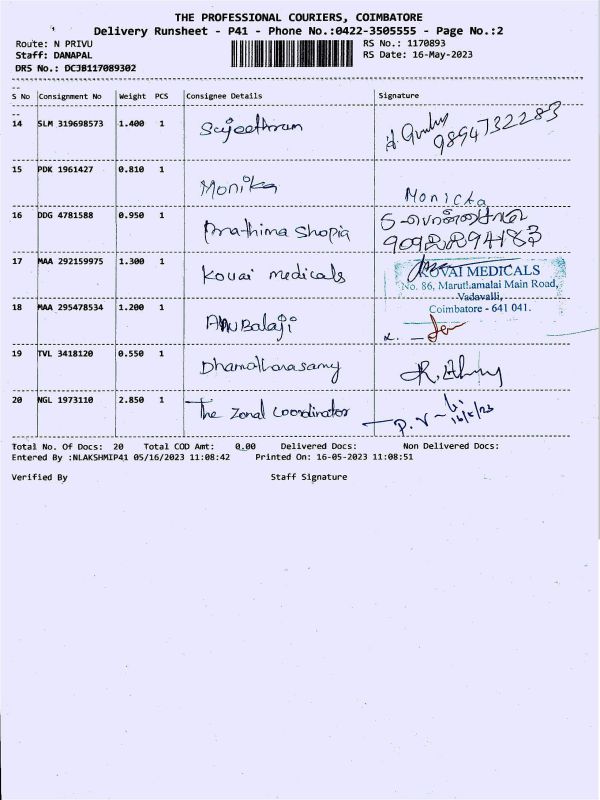 THE PROFESSIONAL COURIERS, COIMBATORE
Delivery Runsheet - P41 - Phone No.:0422-3505555 - Page No.:2
Route: N PRIVU RS No.: 1170893
Staff: DANAPAL RS Date: 16-May-2023
DRS No.: DCJB117089302
S No Consignment No Weight PCS Consignee Details Signature
14 SLM 319698573 1.400 1 Sujeethram
9894732283
15 PDK 1961427 0.810 1 Monika Monicka
16 DDG 4781588 0.950 1 Prathima Shopia
9092294183
17 MAA 292159975 1.300 1 Kovai medicals
KOVAI MEDICALS
No. 86, Maruthamalai Main Road,
Vadavalli,
Coimbatore - 641 041.
18 MAA 295478534 1.200 1 Anu Balaji
19 TVL 3418120 0.550 1 Dhamotharasamy
20 NGL 1973110 2.850 1 The Zonal Coordinator
16/5/23
Total No. Of Docs: 20 Total COD Amt: 0.00 Delivered Docs: Non Delivered Docs:
Entered By :NLAKSHMIP41 05/16/2023 11:08:42 Printed On: 16-05-2023 11:08:51
Verified By Staff Signature